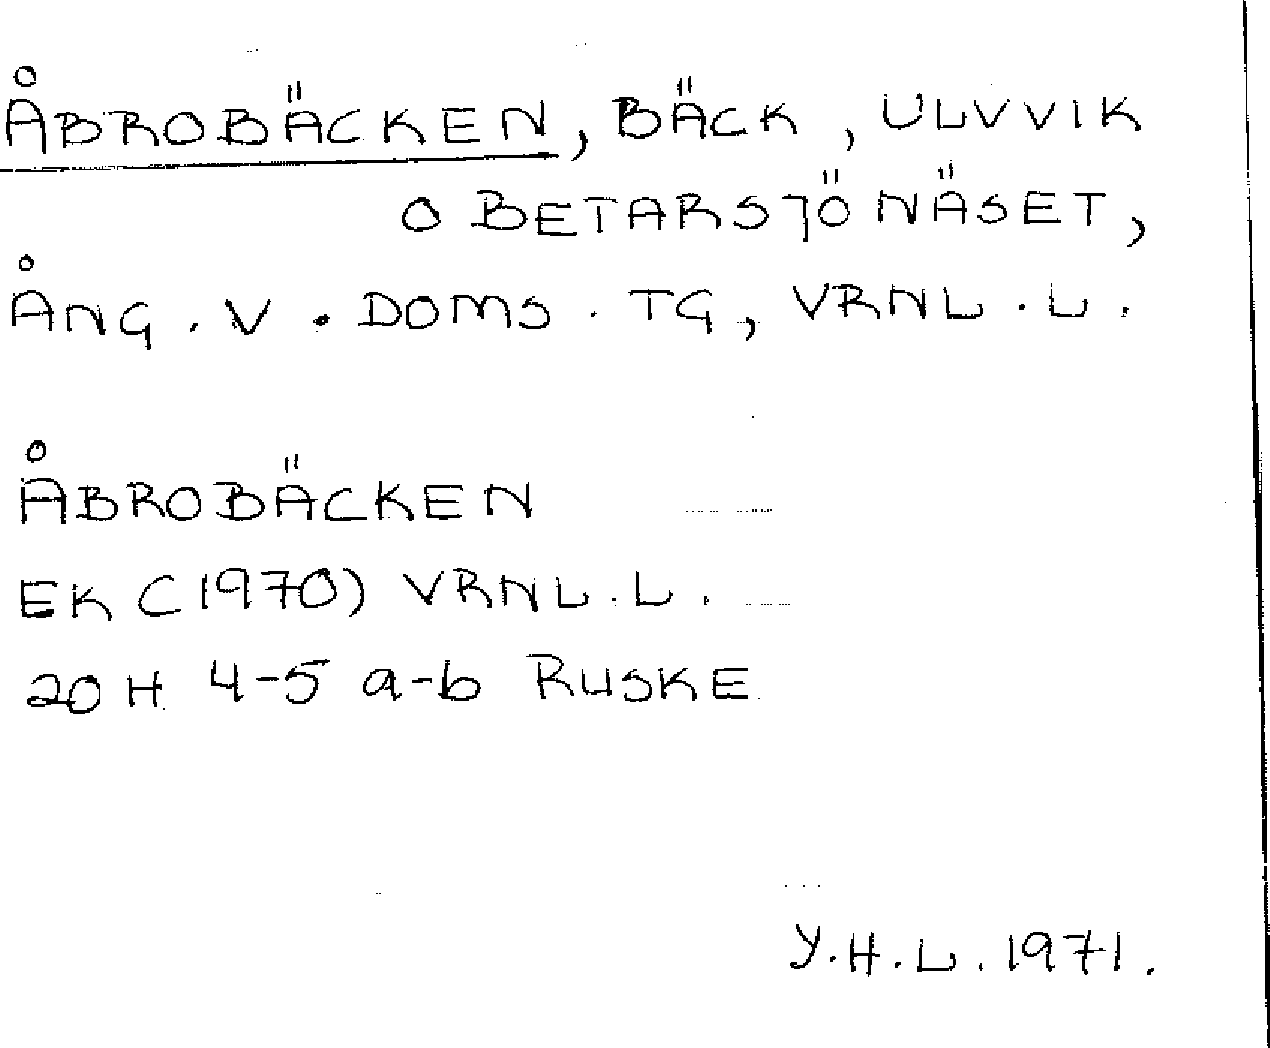 ÅBROBÄCKEN, BÄCK, ULVVIK
O BETARSJÖNÄSET,
ÅNG. V. DOMS. TG, VRNL. L.
ÅBROBÄCKEN
EK (1970) VRNL. L.
20 H 4-5 a-b RUSKE
Y.H.L. 1971.